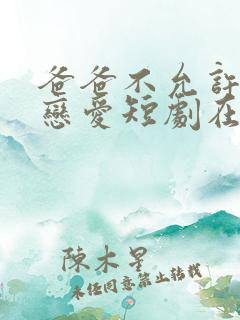 爸爸不允許
戀愛短劇在
陳木星
未經同意禁止轉載